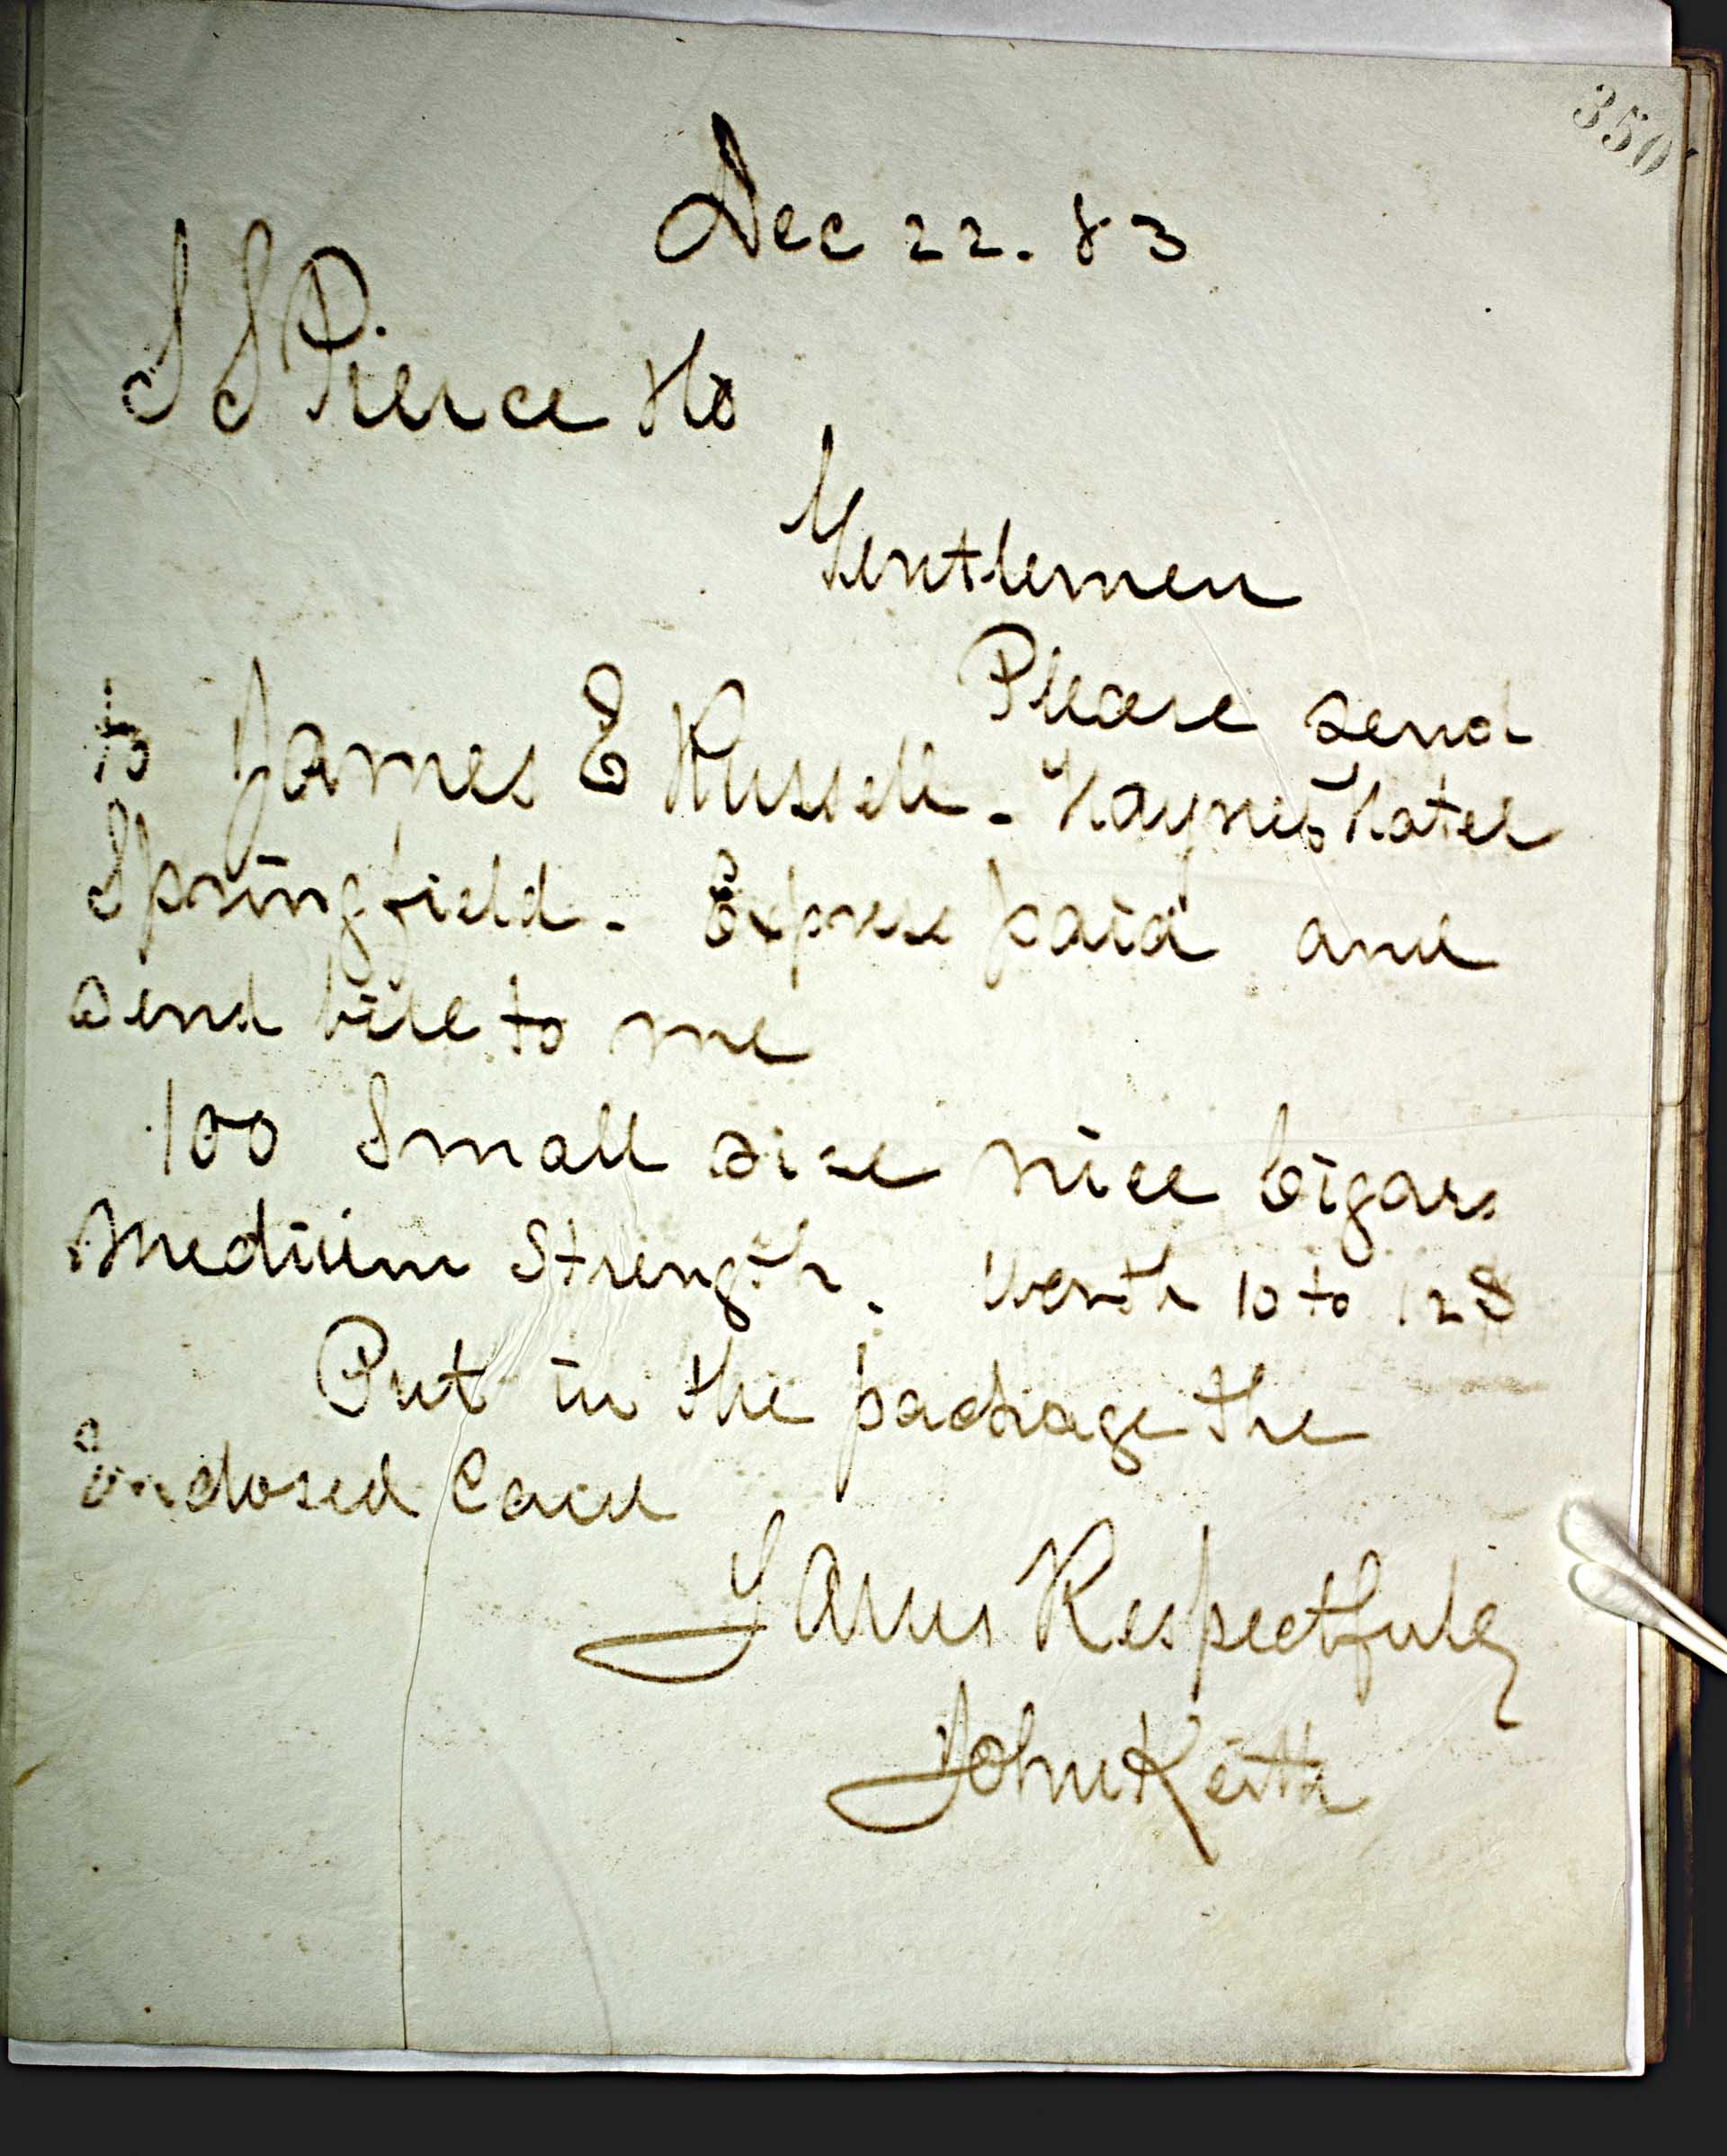 350
Dec 22. 83
S S Pierce & Co
Gentlemen
Please send
to James E Russell - Haynes Hotel
Springfield - Express paid and
send bill to me
100 Small size nice Cigars
Medium Strength. Worth 10 to 12 $
Put in the package the
Enclosed Card
Yours Respectfully
John Keith